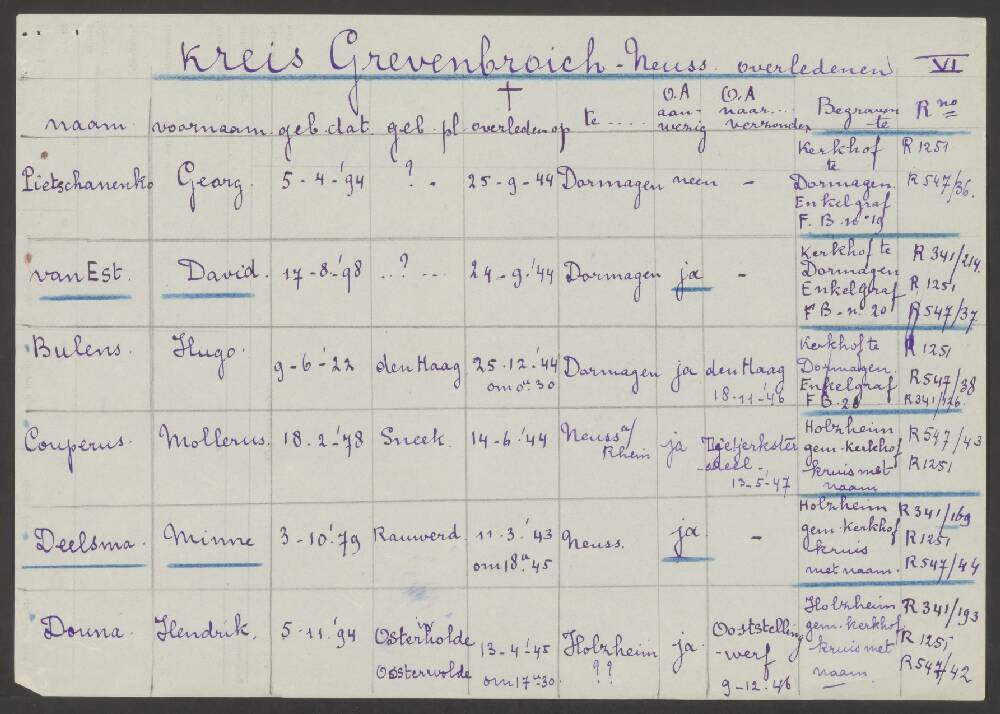 Kreis Grevenbroich-Neuss. overledenen VI
naam voornaam geb.dat geb.pl † overleden op te .... O.A aan-wezig O.A naar... verzonden Begraven te R no
Pietschanenko Georg. 5-4-'94 ? - 25-9-44 Dormagen neen -
Kerkhof
te
Dormagen.
Enkelgraf
F. B. no 19
R 1251
R 547/36.
van Est. David. 17-8-'98 ..?.... 24-9-'44 Dormagen ja -
Kerkhof te
Dormagen
Enkelgraf
F B - n. 20
R 341/214.
R 1251
R 547/37
Bulens. Hugo. 9-6-'22 den Haag 25-12-'44
om 0 u 30
Dormagen ja den Haag
18-11-'46
Kerkhof te
Dormagen.
Enkelgraf
F B.
R 1251
R 547/38
R 341/126.
Couperus. Mollerus. 18-2-'78 Sneek. 14-6-'44 Neuss a/
Rhein
ja Tietjerkster
-deel-,
13-5-'47
Holzheim
gem.-Kerkhof
kruis met
naam
R 547/43
R 1251
Deelsma. Minne 3-10-'79 Rauwerd. 11-3-'43
om 18 u 45
Neuss. ja -
Holzheim
gem.-Kerkhof
kruis
met naam.
R 341/169
R 1251
R 547/44
Douna. Hendrik. 5-11-'94 Osterholde
Oosterwolde
13-4-'45
om 17 u -30.
Holzheim
??
ja. Ooststelling
-werf
9-12-46
Holzheim
gem.-kerkhof
kruis met
naam.
R 341/193
R 1251
R 547/42